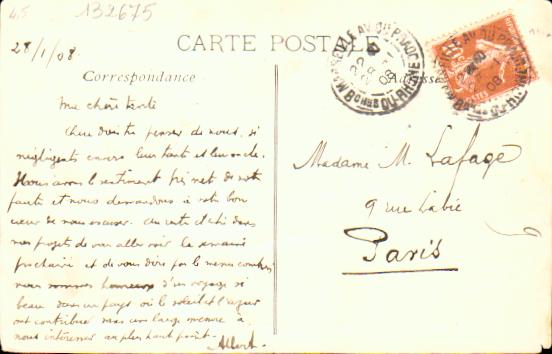 45
132675
28/1/08.
CARTE POSTALE
Correspondance
Adresse
MARSEILLE AV. DU PRADO
BCHES DU RHONE
08
ma chère tante
Que dois tu penser de nous, si
négligents envers leur tante et leur oncle.
Nous avons le sentiment très net de notre
faute et nous demandons à votre bon
cœur de nous excuser. Au reste il est dans
nos projets de vous aller voir la semaine
prochaine et de vous dire par le menu combien
nous sommes heureux d'un voyage si
beau dans un pays où le soleil et l'azur
ont contribué dans une large mesure à
nous intéresser au plus haut point.
Albert.
Madame M. Lafage
9 rue Labie
Paris